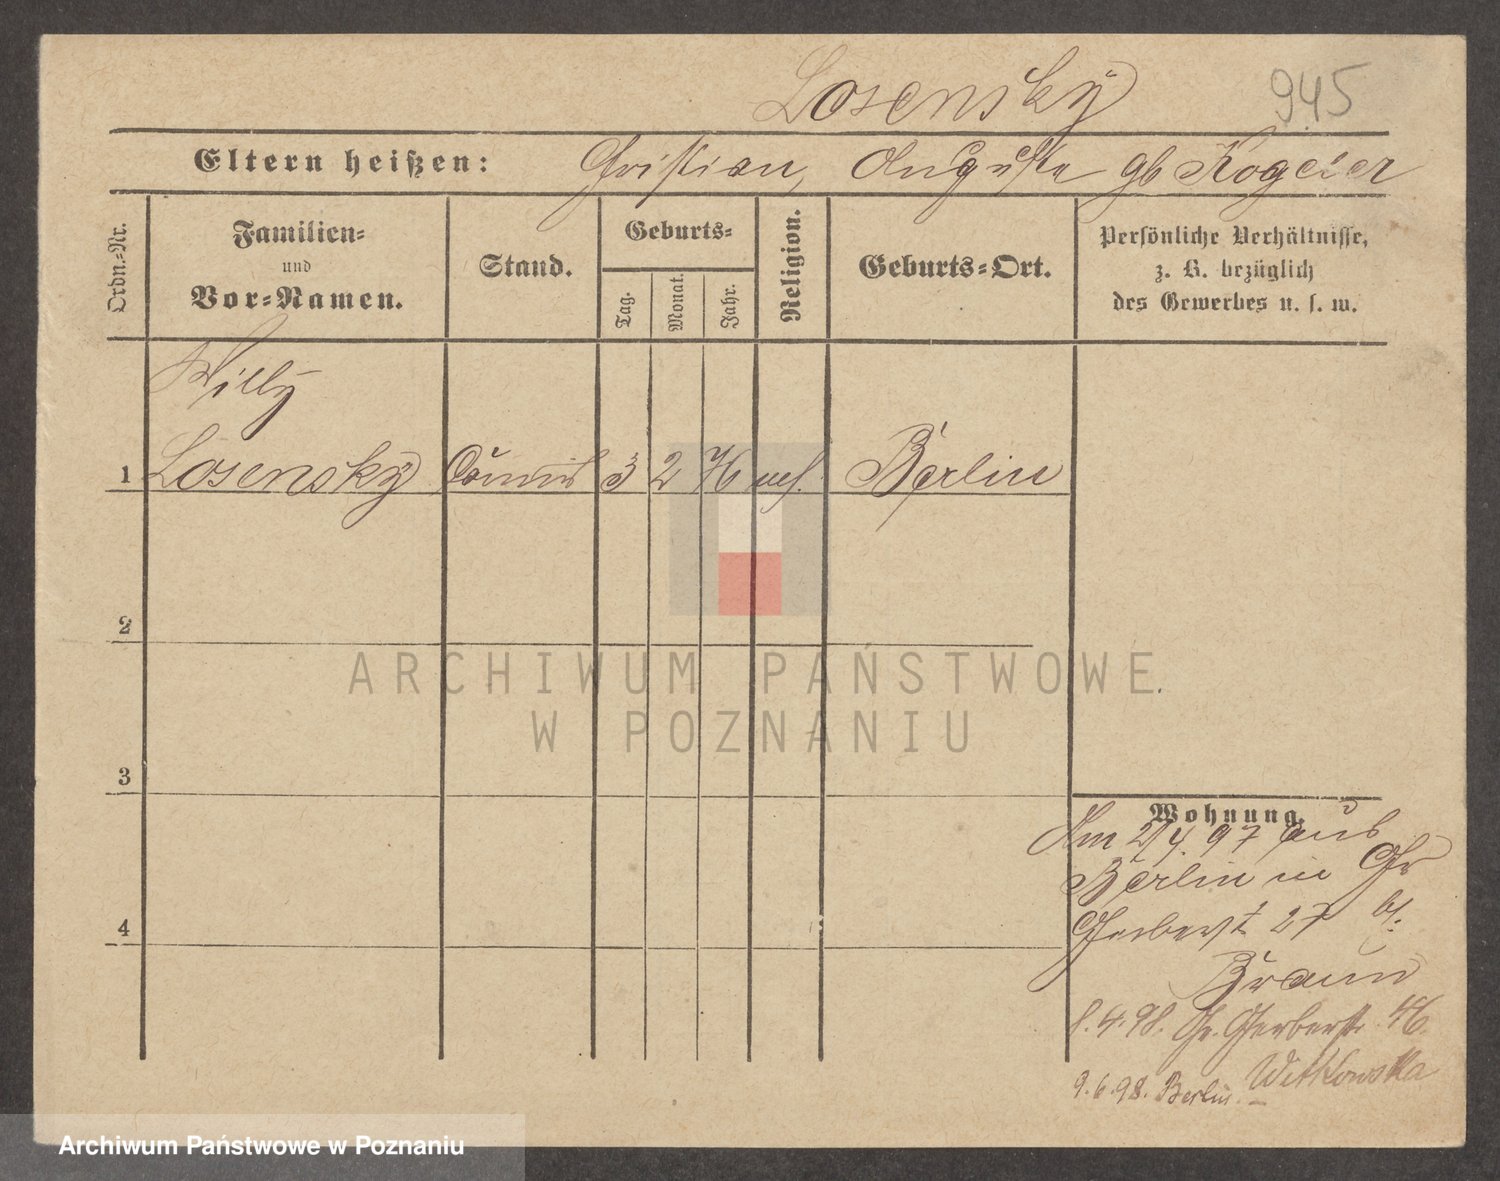 Losensky
945
Eltern heißen: Christian, Auguste gb Kogeler
Ordn.-Nr.
Familien- und Vor-Namen.
Stand.
Geburts-
Tag.
Monat.
Jahr.
Religion.
Geburts-Ort.
Persönliche Verhältnisse,
z. B. bezüglich
des Gewerbes u. s. w.
Willy
1 Losensky Commis 3 2 76 Berlin
2
3
4
ARCHIWUM PAŃSTWOWE
W POZNANIU
Wohnung.
Am 2/4. 97 aus
Berlin in Gr
Gerberst 27 b.
Braun
8.4.98. Gr. Gerberstr. 46.
Witkowska
9.6.98. Berlin.
Archiwum Państwowe w Poznaniu